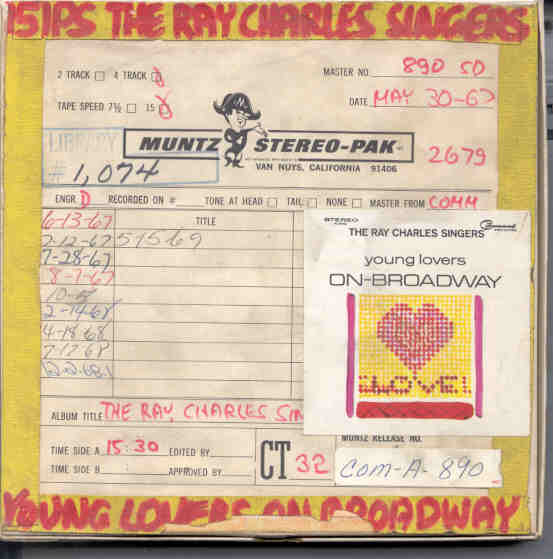 15IPS THE RAY CHARLES SINGERS
2 TRACK 4 TRACK
MASTER NO. 890 SD
TAPE SPEED 7½ 15
DATE MAY 30-67
LIBRARY
# 1,074
MUNTZ STEREO-PAK
VAN NUYS, CALIFORNIA 91406
2679
ENGR. D RECORDED ON # TONE AT HEAD TAIL NONE MASTER FROM COMM
6-13-67 TITLE
7-12-67 51569
7-28-67
8-7-67
2-14-68
4-18-68
7-17-68
STEREO
Command
THE RAY CHARLES SINGERS
young lovers
ON-BROADWAY
LOVE!
ALBUM TITLE THE RAY CHARLES SIN
TIME SIDE A 15:30 EDITED BY
TIME SIDE B APPROVED BY
CT 32
MUNTZ RELEASE NO.
COM-A-890
YOUNG LOVERS ON BROADWAY